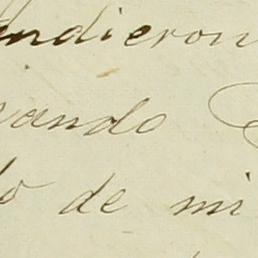 endieron
ando
do de mi